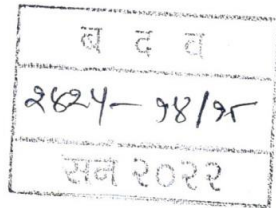 ब द व
२४२५ – १४/१५
सन २०२२